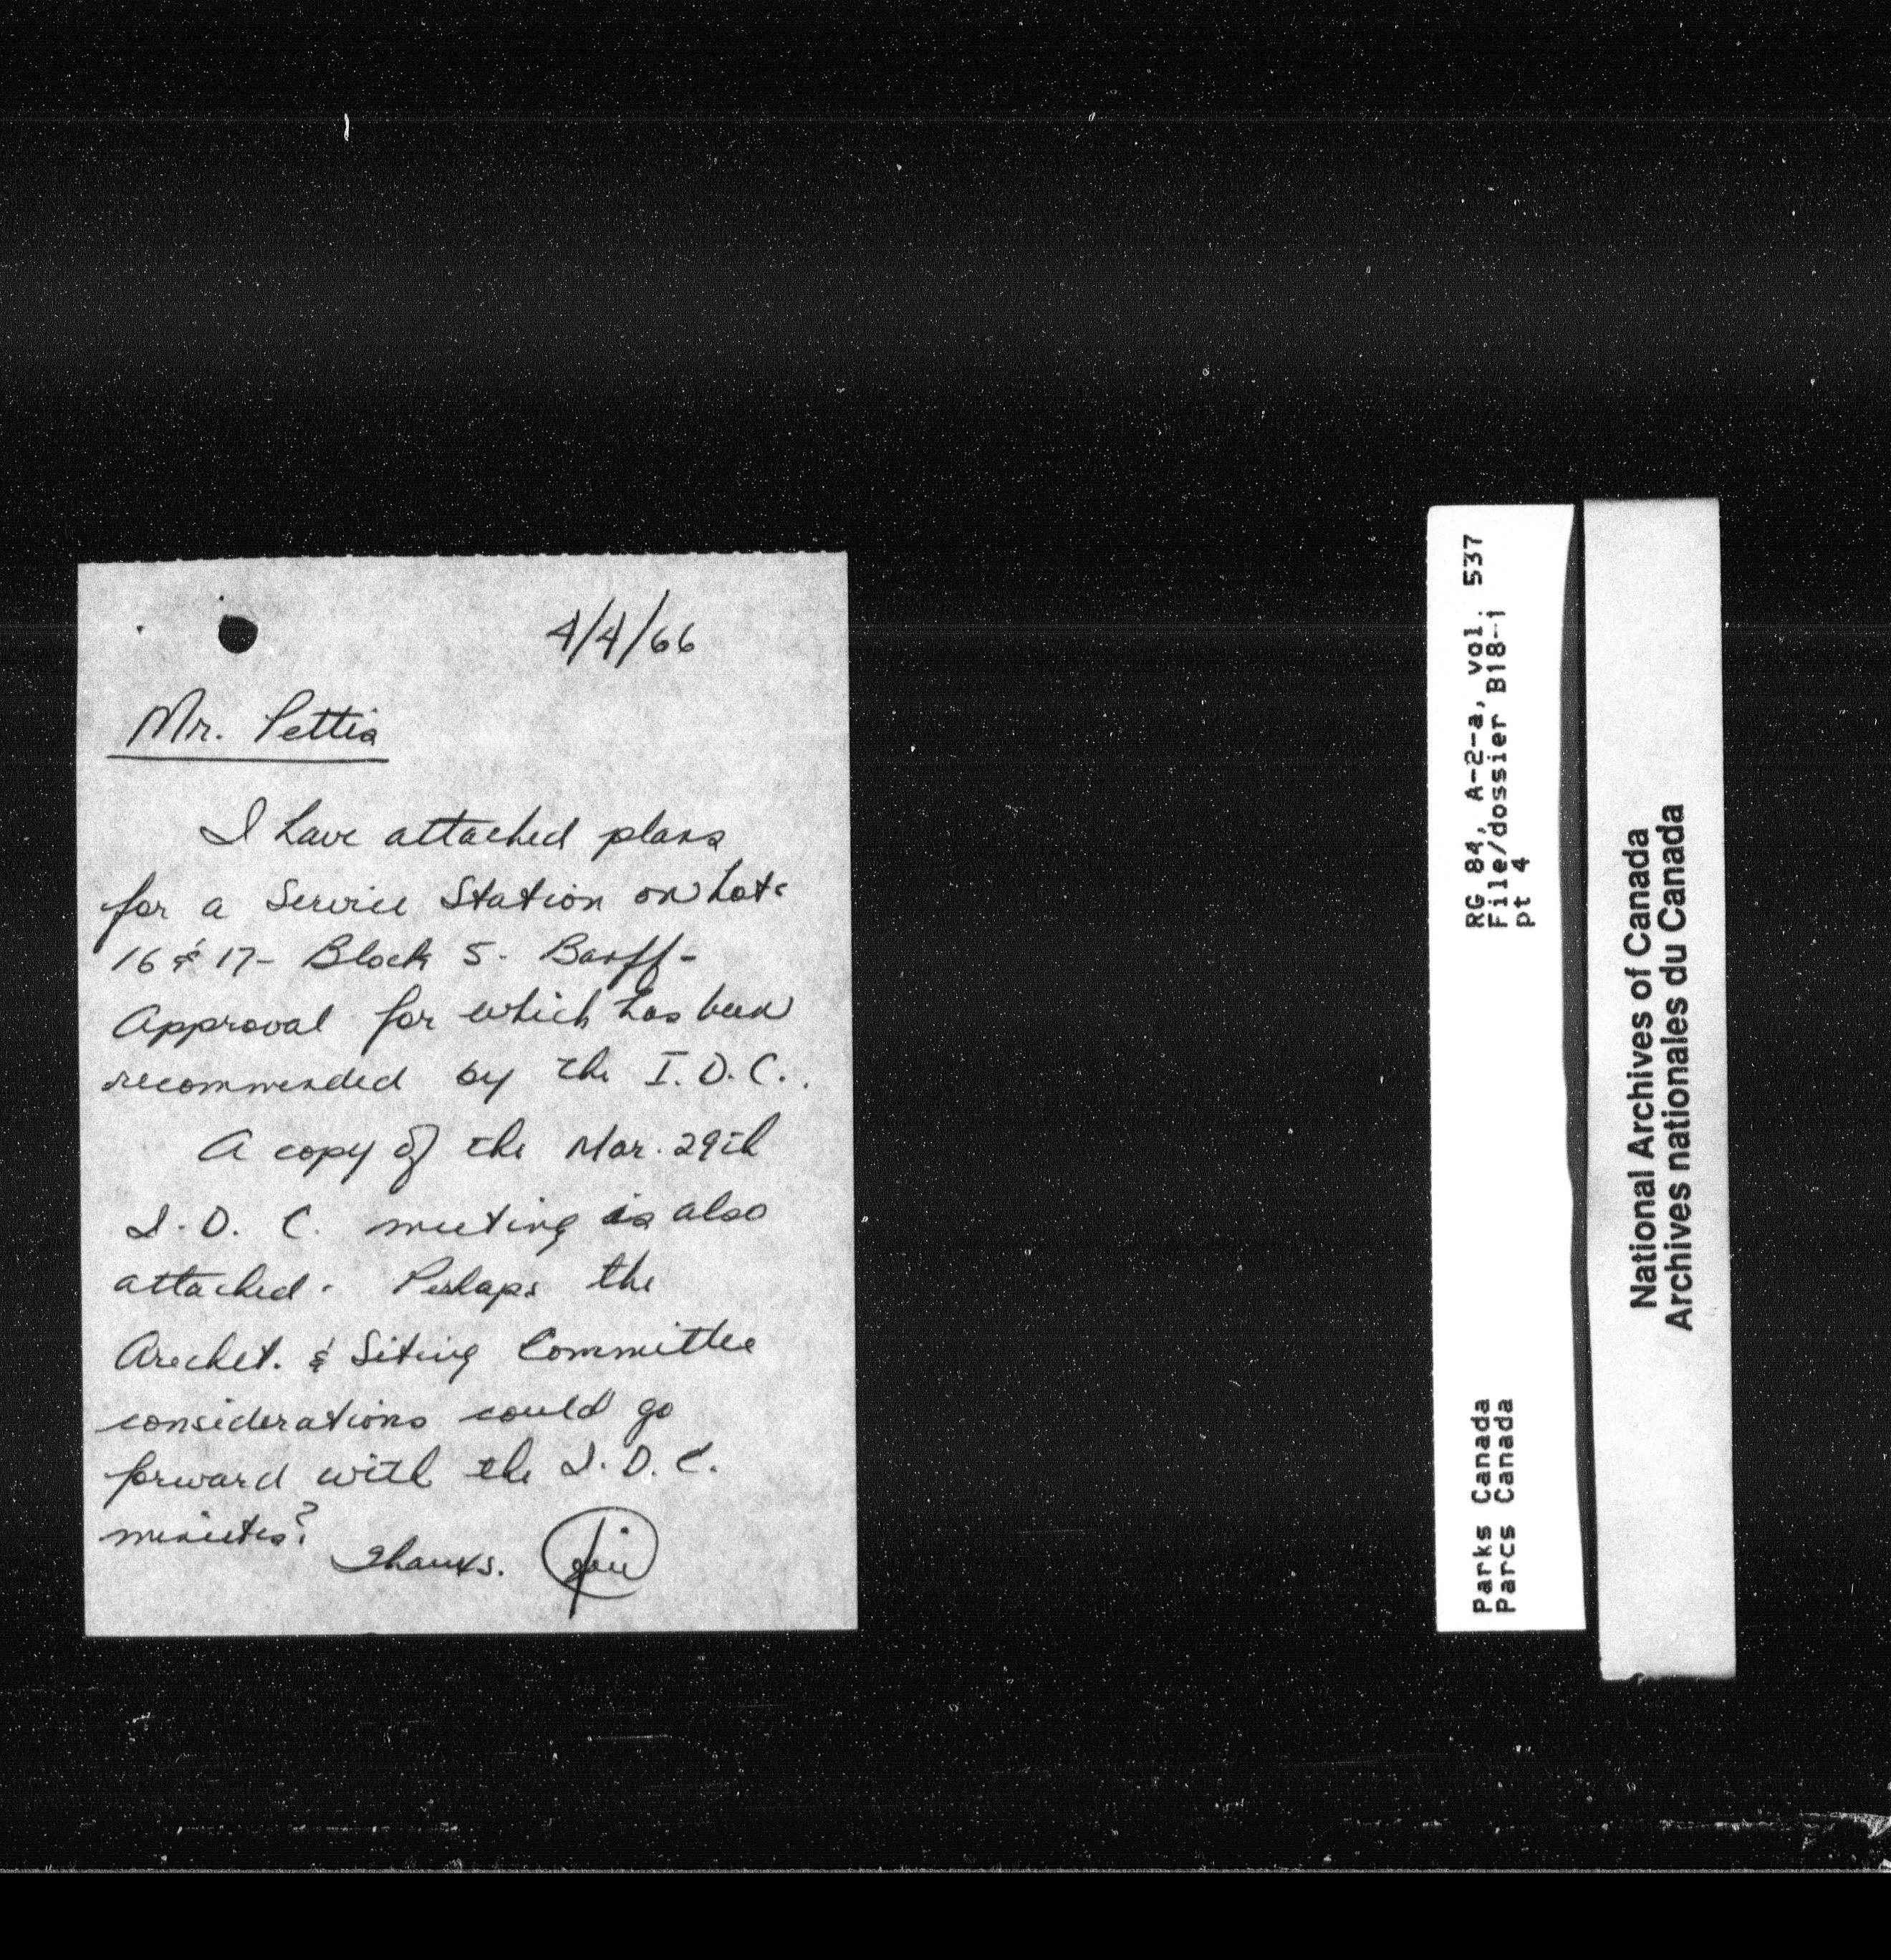 4/4/66
Mr. Pettis
I have attached plans
for a Service Station on Lots
16 & 17 - Block 5. Banff -
Approval for which has been
recommended by the I.D.C..
A copy of the Mar. 29th
I.D.C. meeting is also
attached. Perhaps the
Archet. & Siting Committee
considerations could go
forward with the I.D.C.
minutes?
Thanks.
RG 84, A-2-a, vol. 537
File/dossier B18-1
pt 4
Parks Canada
Parcs Canada
National Archives of Canada
Archives nationales du Canada